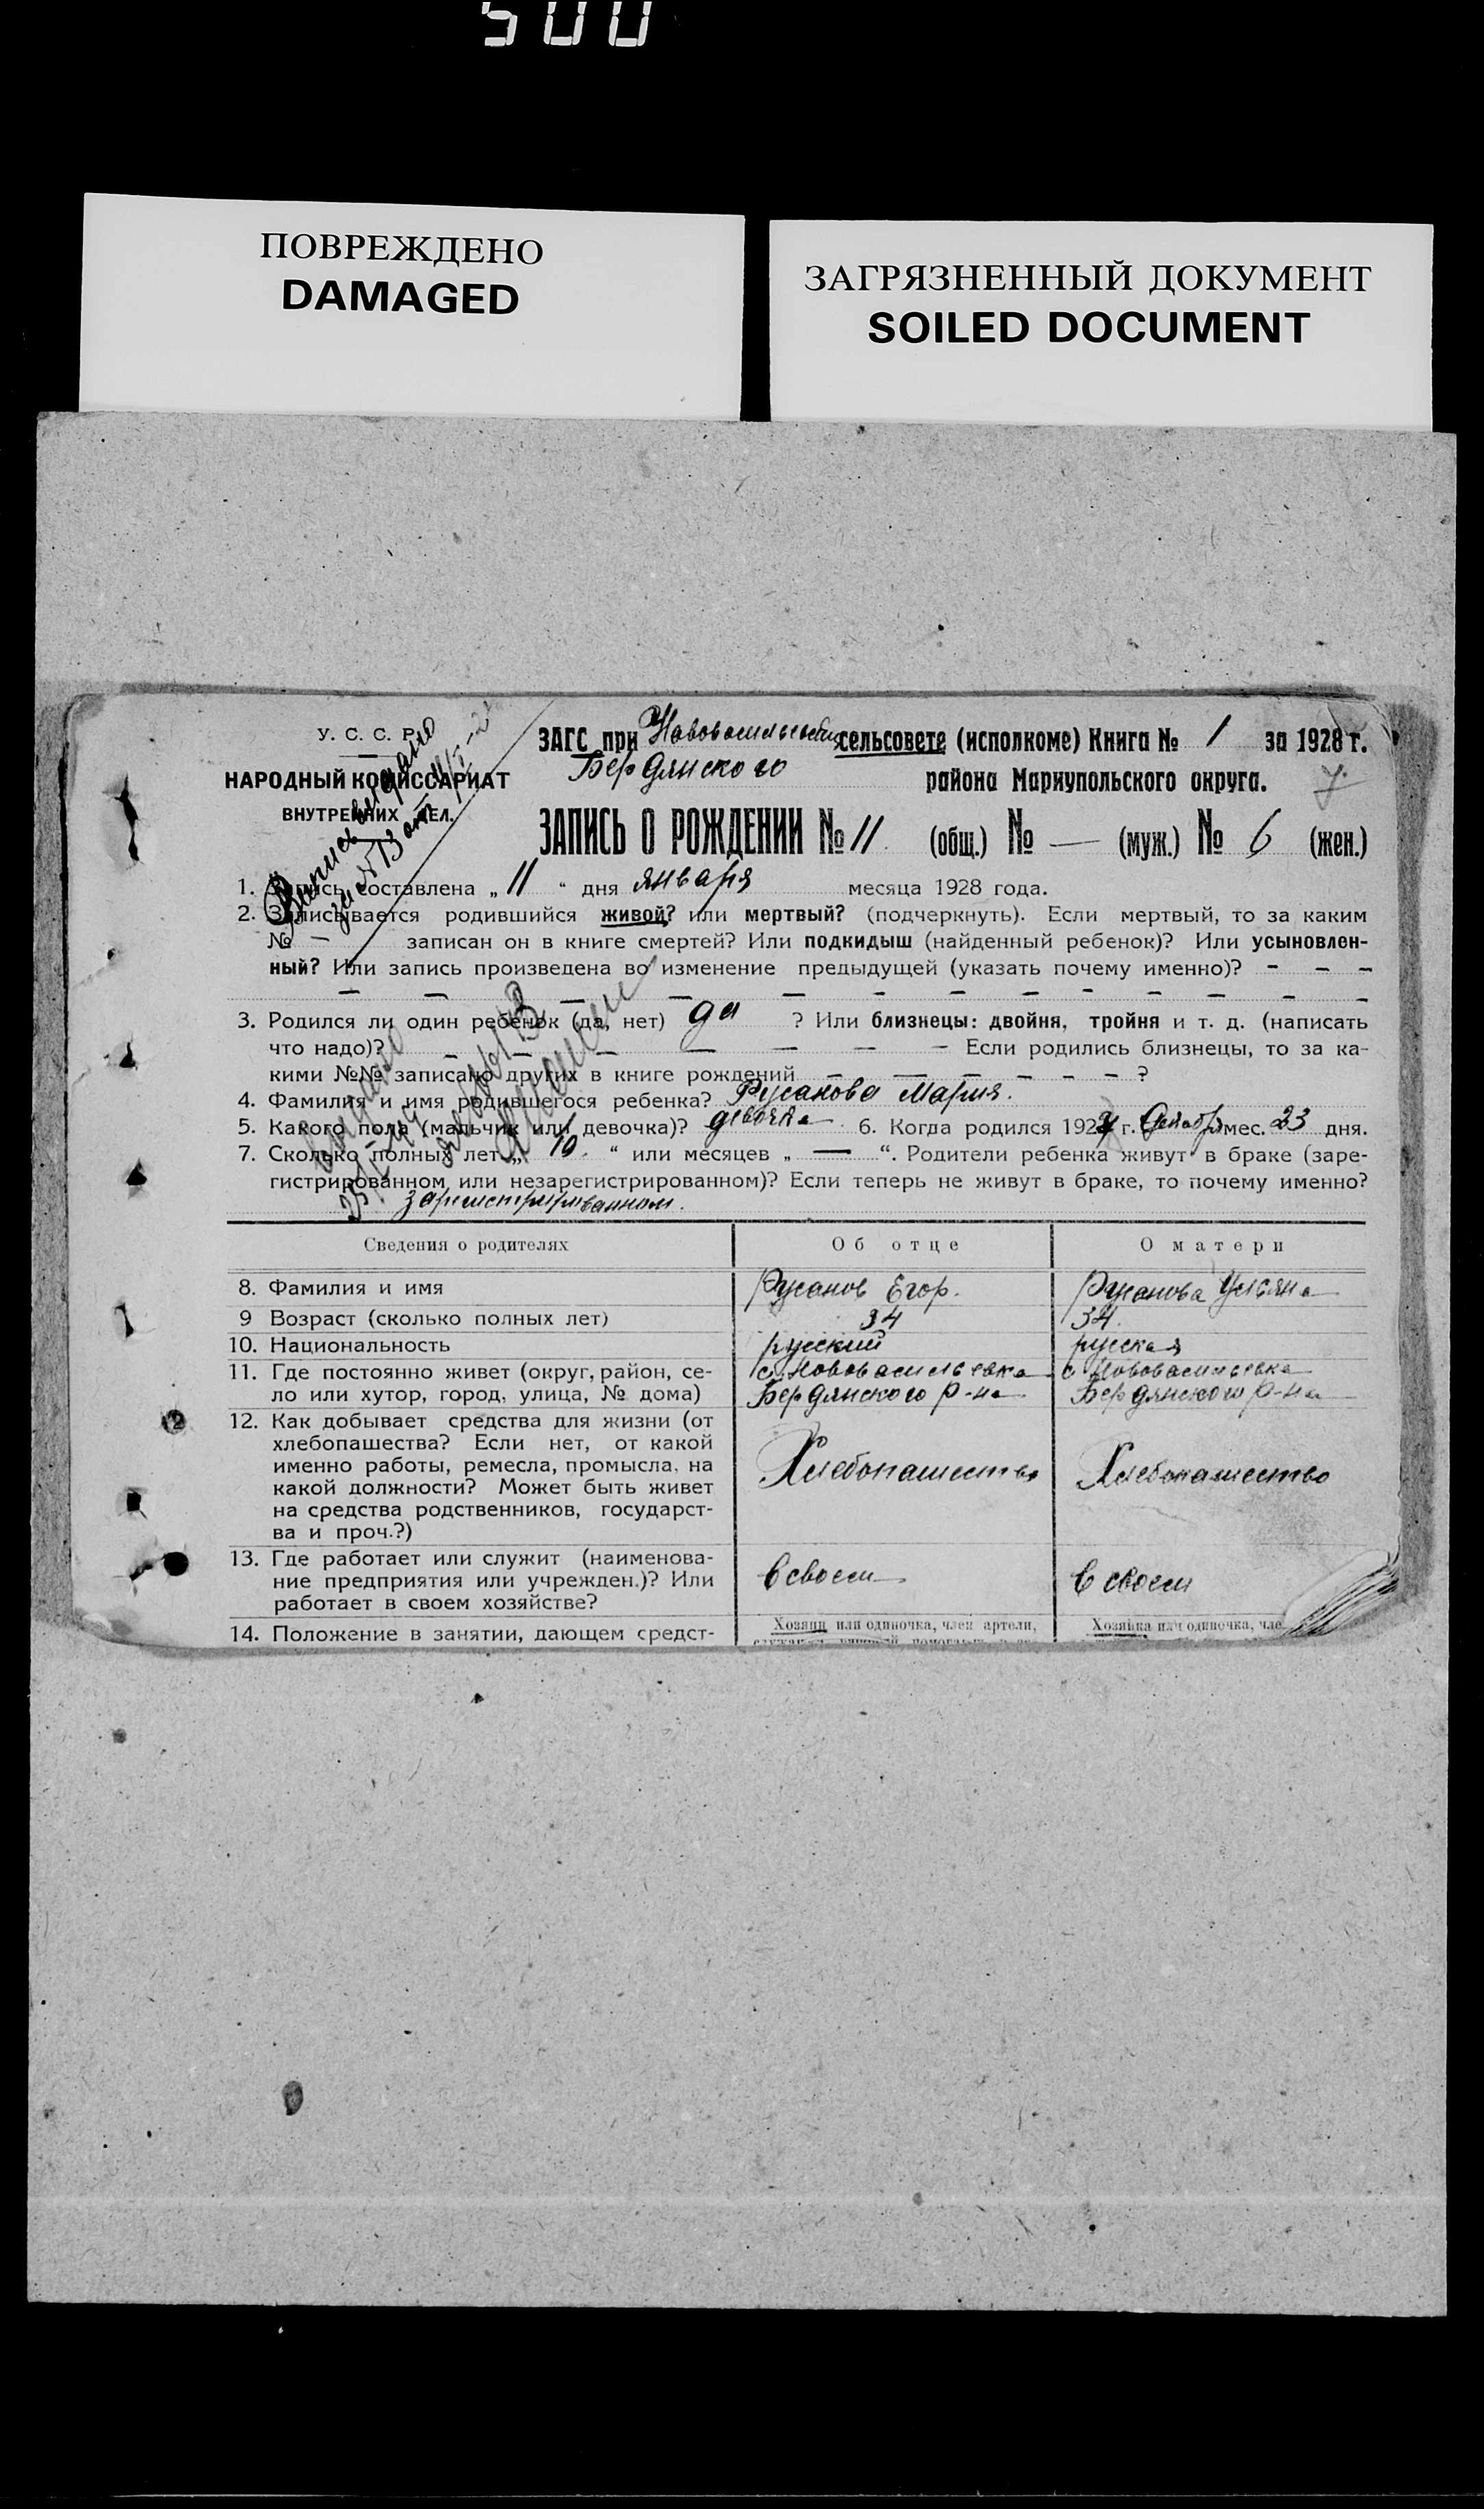 500
ПОВРЕЖДЕНО
DAMAGED
ЗАГРЯЗНЕННЫЙ ДОКУМЕНТ
SOILED DOCUMENT
У. С. С. Р.
НАРОДНЫЙ КОМИССАРИАТ
ВНУТРЕННИХ ДЕЛ.
ЗАГС при сельсовете (исполкоме) Книга № 1 за 1928 г.
Бердянского района Мариупольского округа.
7
ЗАПИСЬ О РОЖДЕНИИ № 11 (общ.) № — (муж.) № 6 (жен.)
1. Запись составлена „ 11 “ дня января месяца 1928 года.
2. Записывается родившийся живой? или мертвый? (подчеркнуть). Если мертвый, то за каким
№ — записан он в книге смертей? Или подкидыш (найденный ребенок)? Или усыновлен-
ный? Или запись произведена во изменение предыдущей (указать почему именно)? - - -
— — — — — - — — - — — — —
3. Родился ли один ребенок (да, нет) да ? Или близнецы: двойня, тройня и т. д. (написать
что надо)? — — — — — — — Если родились близнецы, то за ка-
кими №№ записано других в книге рождений — — — — - — ?
4. Фамилия и имя родившегося ребенка? Русанова Мария.
5. Какого пола (мальчик или девочка)? девочка 6. Когда родился 192 г. Декабр мес. 23 дня.
7. Сколько полных лет „ 10. “ или месяцев „ — “. Родители ребенка живут в браке (заре-
гистрированном или незарегистрированном)? Если теперь не живут в браке, то почему именно?
зарегистрированном.
Сведения о родителях Об отце О матери
8. Фамилия и имя Русанов Егор. Русанова Ульяна
9 Возраст (сколько полных лет) 34 34.
10. Национальность русский русская
11. Где постоянно живет (округ, район, се- с. Нововасильевка с. Нововасильевка
ло или хутор, город, улица, № дома) Бердянского р-на Бердянского р-на
12. Как добывает средства для жизни (от
хлебопашества? Если нет, от какой
именно работы, ремесла, промысла, на Хлебопашество Хлебопашество
какой должности? Может быть живет
на средства родственников, государст-
ва и проч.?)
13. Где работает или служит (наименова-
ние предприятия или учрежден.)? Или в своем в своем
работает в своем хозяйстве?
14. Положение в занятии, дающем средст- Хозяин или одиночка, член артели, Хозяйка или одиночка, чле